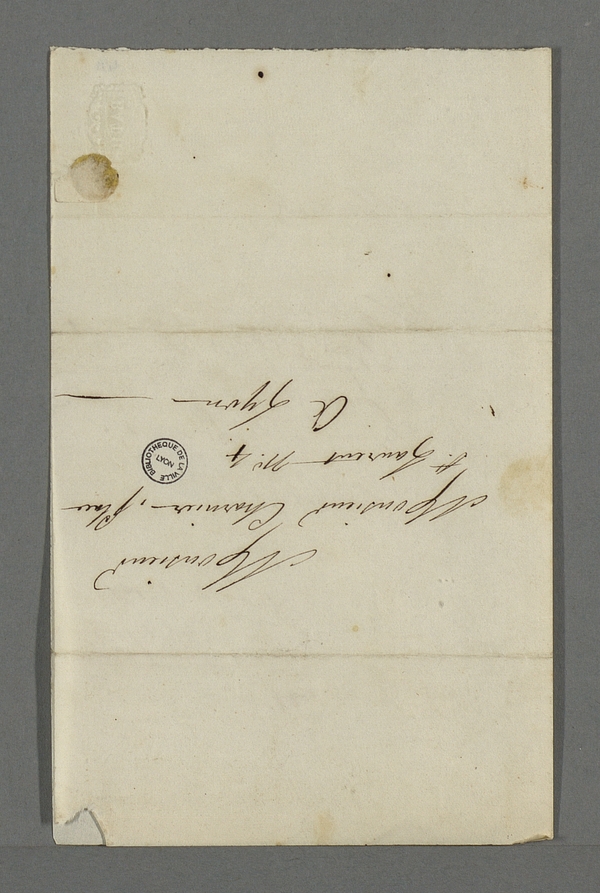 Monsieur
Monsieur Charnier, place
St. Laurent No. 4
A Lyon
BIBLIOTHEQUE DE LA VILLE
LYON